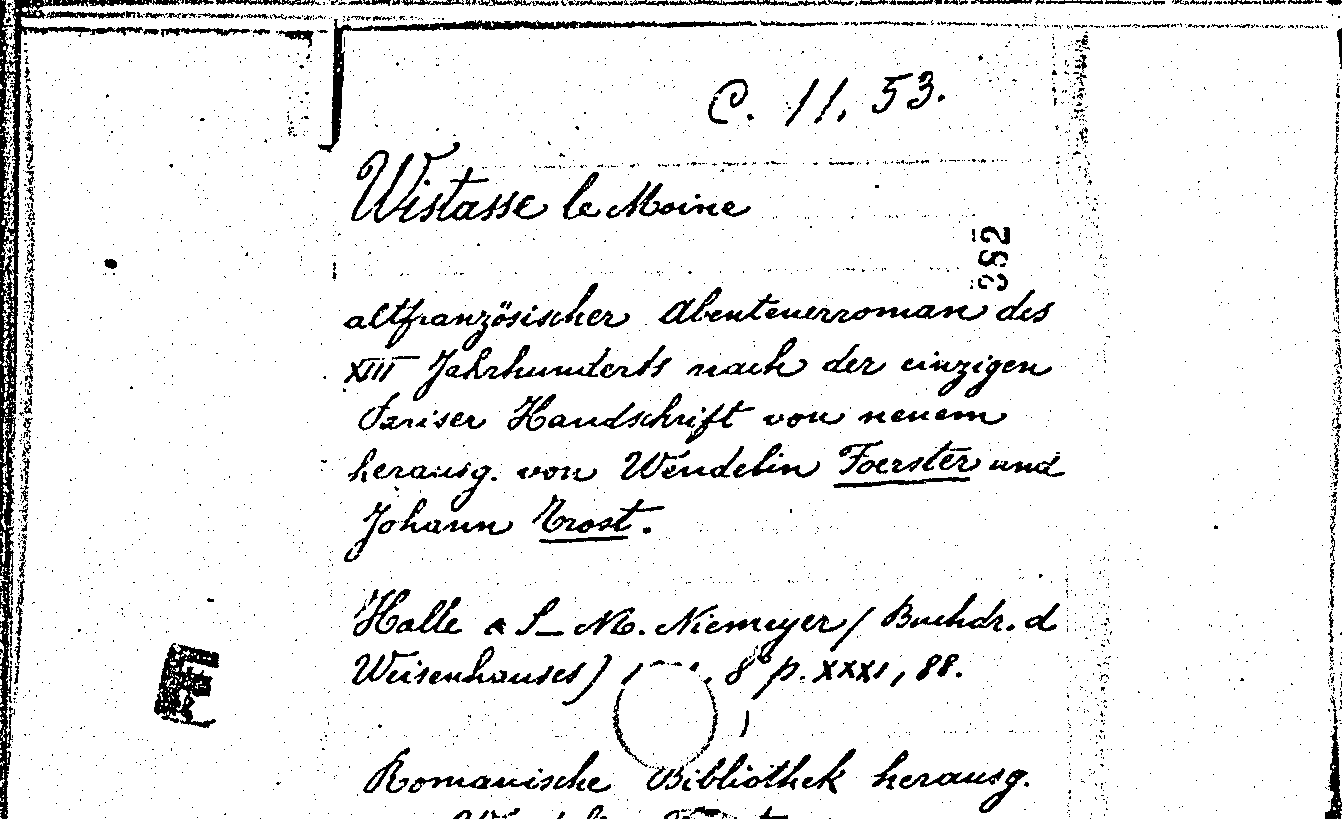 C. 11. 53.
Wistasse le Moine
352
altfranzösischer Abenteuerroman des
XIII Jahrhunderts nach der einzigen
Pariser Handschrift von neuem
herausg. von Wendelin Foerster und
Johann Trost.
Halle a S_ M. Niemeyer / Buchdr. d
Weisenhauses) 8° p. XXXI, 88.
E
Romanische Bibliothek herausg.